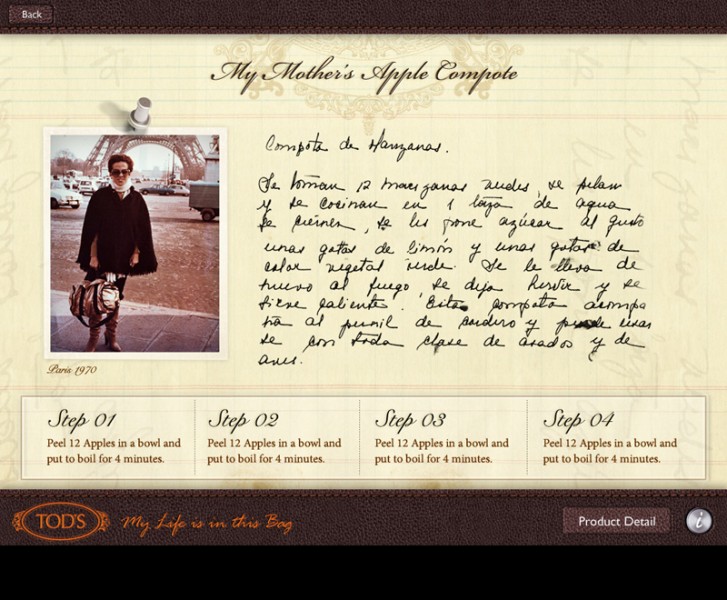 Back
My Mother's Apple Compote
Compota de Manzanas.
Se toman 12 manzanas verdes, se pelan
y se cocinan en 1 taza de agua
Se ciernen, se les pone azúcar al gusto
unas gotas de limón y unas gotas de
color vegetal verde. Se le lleva de
nuevo al fuego se deja hervir y se
sirve caliente. Esta compota acompa
ña al pernil de cordero y puede usar
se con toda clase de asados y de
aves.
Paris 1970
Step 01
Peel 12 Apples in a bowl and
put to boil for 4 minutes.
Step 02
Peel 12 Apples in a bowl and
put to boil for 4 minutes.
Step 03
Peel 12 Apples in a bowl and
put to boil for 4 minutes.
Step 04
Peel 12 Apples in a bowl and
put to boil for 4 minutes.
TOD'S
My Life is in this Bag
Product Detail
i